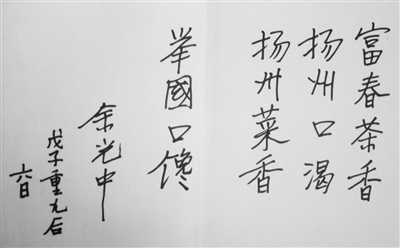 富春茶香
扬州口渴
扬州菜香
举國口馋
余光中
戊子重九后
六日